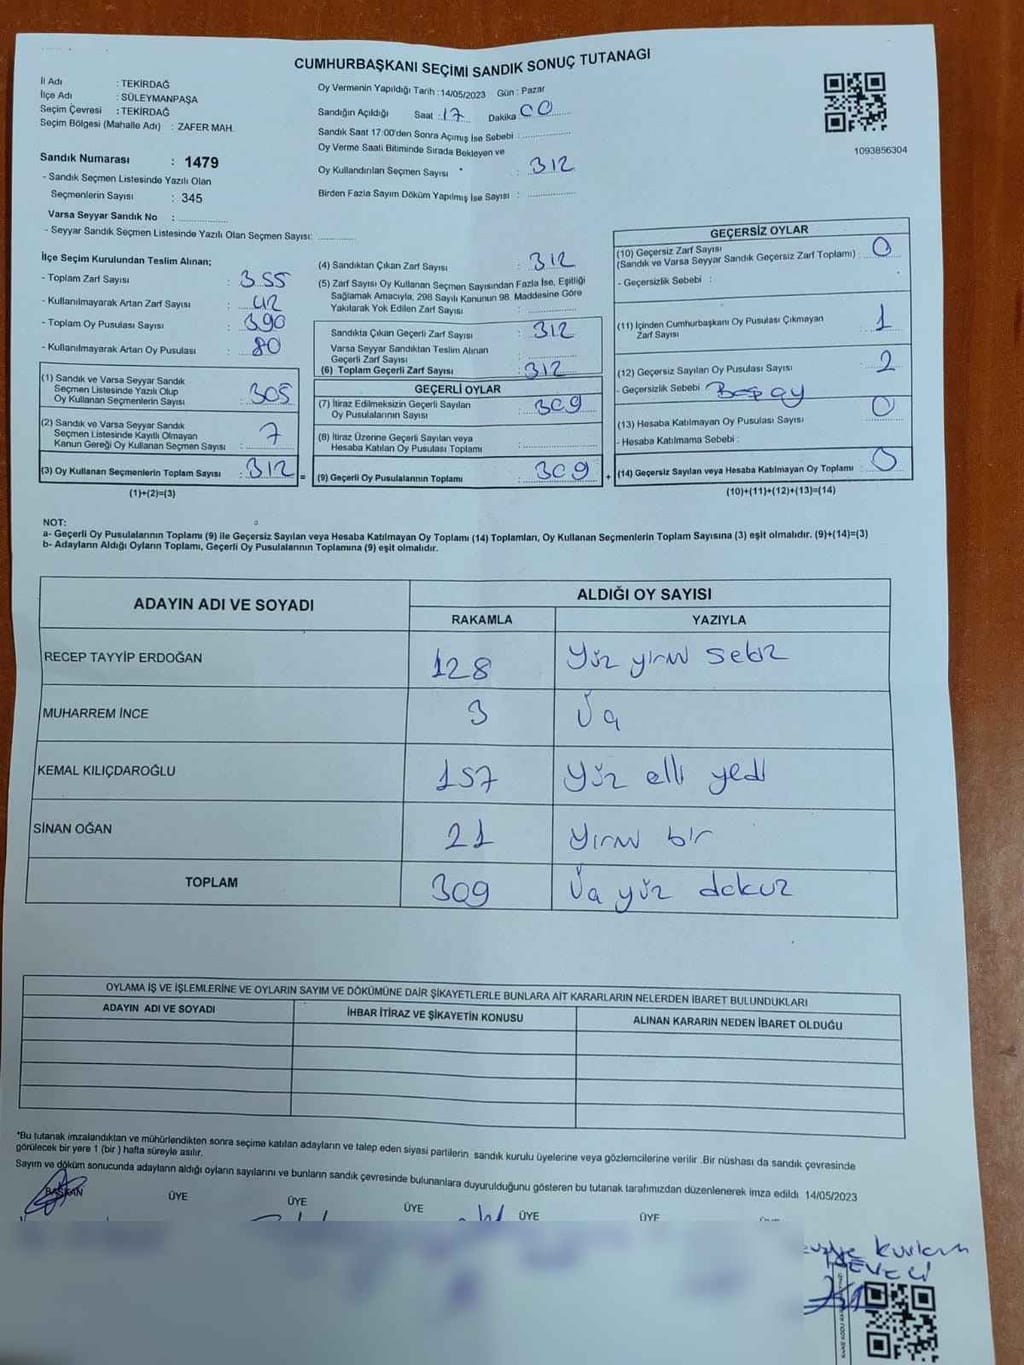 CUMHURBAŞKANI SEÇİMİ SANDIK SONUÇ TUTANAGI
İl Adı : TEKİRDAĞ
İlçe Adı : SÜLEYMANPAŞA
Seçim Çevresi : TEKİRDAĞ
Seçim Bölgesi (Mahalle Adı) : ZAFER MAH.
Oy Vermenin Yapıldığı Tarih :14/05/2023 Gün : Pazar
Sandığın Açıldığı Saat : 17 Dakika 00
Sandık Saat 17:00'den Sonra Açımış İse Sebebi :
Oy Verme Saati Bitiminde Sırada Bekleyen ve
Oy Kullandırılan Seçmen Sayısı : 312
Birden Fazla Sayım Döküm Yapılmış İse Sayısı :
1093856304
Sandık Numarası : 1479
- Sandık Seçmen Listesinde Yazılı Olan
Seçmenlerin Sayısı : 345
Varsa Seyyar Sandık No :
- Seyyar Sandık Seçmen Listesinde Yazılı Olan Seçmen Sayısı:
İlçe Seçim Kurulundan Teslim Alınan;
- Toplam Zarf Sayısı : 355
- Kullanılmayarak Artan Zarf Sayısı : 42
- Toplam Oy Pusulası Sayısı : 390
- Kullanılmayarak Artan Oy Pusulası : 80
(1) Sandık ve Varsa Seyyar Sandık
Seçmen Listesinde Yazılı Olup
Oy Kullanan Seçmenlerin Sayısı : 305
(2) Sandık ve Varsa Seyyar Sandık
Seçmen Listesinde Kayıtlı Olmayan
Kanun Gereği Oy Kullanan Seçmen Sayısı : 7
(3) Oy Kullanan Seçmenlerin Toplam Sayısı : 312 =
(1)+(2)=(3)
(4) Sandıktan Çıkan Zarf Sayısı : 312
(5) Zarf Sayısı Oy Kullanan Seçmen Sayısından Fazla İse, Eşitliği
Sağlamak Amacıyla, 298 Sayılı Kanunun 98. Maddesine Göre
Yakılarak Yok Edilen Zarf Sayısı :
Sandıkta Çıkan Geçerli Zarf Sayısı : 312
Varsa Seyyar Sandıktan Teslim Alınan
Geçerli Zarf Sayısı :
(6) Toplam Geçerli Zarf Sayısı : 312
GEÇERLİ OYLAR
(7) İtiraz Edilmeksizin Geçerli Sayılan
Oy Pusulalarının Sayısı : 309
(8) İtiraz Üzerine Geçerli Sayılan veya
Hesaba Katılan Oy Pusulası Toplamı :
(9) Geçerli Oy Pusulalarının Toplamı : 309 +
GEÇERSİZ OYLAR
(10) Geçersiz Zarf Sayısı
(Sandık ve Varsa Seyyar Sandık Geçersiz Zarf Toplamı) : 0
- Geçersizlik Sebebi :
(11) İçinden Cumhurbaşkanı Oy Pusulası Çıkmayan
Zarf Sayısı : 1
(12) Geçersiz Sayılan Oy Pusulası Sayısı : 2
- Geçersizlik Sebebi : Boş oy
(13) Hesaba Katılmayan Oy Pusulası Sayısı : 0
- Hesaba Katılmama Sebebi :
(14) Geçersiz Sayılan veya Hesaba Katılmayan Oy Toplamı :
(10)+(11)+(12)+(13)=(14)
NOT:
a- Geçerli Oy Pusulalarının Toplamı (9) ile Geçersiz Sayılan veya Hesaba Katılmayan Oy Toplamı (14) Toplamları, Oy Kullanan Seçmenlerin Toplam Sayısına (3) eşit olmalıdır. (9)+(14)=(3)
b- Adayların Aldığı Oyların Toplamı, Geçerli Oy Pusulalarının Toplamına (9) eşit olmalıdır.
ADAYIN ADI VE SOYADI ALDIĞI OY SAYISI
RAKAMLA YAZIYLA
RECEP TAYYİP ERDOĞAN 128 Yüz yirmi sekiz
MUHARREM İNCE 3 Üç
KEMAL KILIÇDAROĞLU 157 Yüz elli yedi
SİNAN OĞAN 21 Yirmi bir
TOPLAM 309 Üç yüz dokuz
OYLAMA İŞ VE İŞLEMLERİNE VE OYLARIN SAYIM VE DÖKÜMÜNE DAİR ŞİKAYETLERLE BUNLARA AİT KARARLARIN NELERDEN İBARET BULUNDUKLARI
ADAYIN ADI VE SOYADI İHBAR İTİRAZ VE ŞİKAYETİN KONUSU ALINAN KARARIN NEDEN İBARET OLDUĞU
*Bu tutanak imzalandıktan ve mühürlendikten sonra seçime katılan adayların ve talep eden siyasi partilerin sandık kurulu üyelerine veya gözlemcilerine verilir .Bir nüshası da sandık çevresinde
görülecek bir yere 1 (bir ) hafta süreyle asılır.
Sayım ve döküm sonucunda adayların aldığı oyların sayılarını ve bunların sandık çevresinde bulunanlara duyurulduğunu gösteren bu tutanak tarafımızdan düzenlenerek imza edildi 14/05/2023
BAŞKAN ÜYE ÜYE ÜYE ÜYE ÜYE